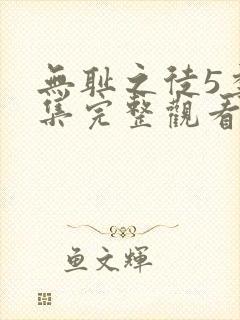 無耻之徒5季
集完整觀看
鱼文輝